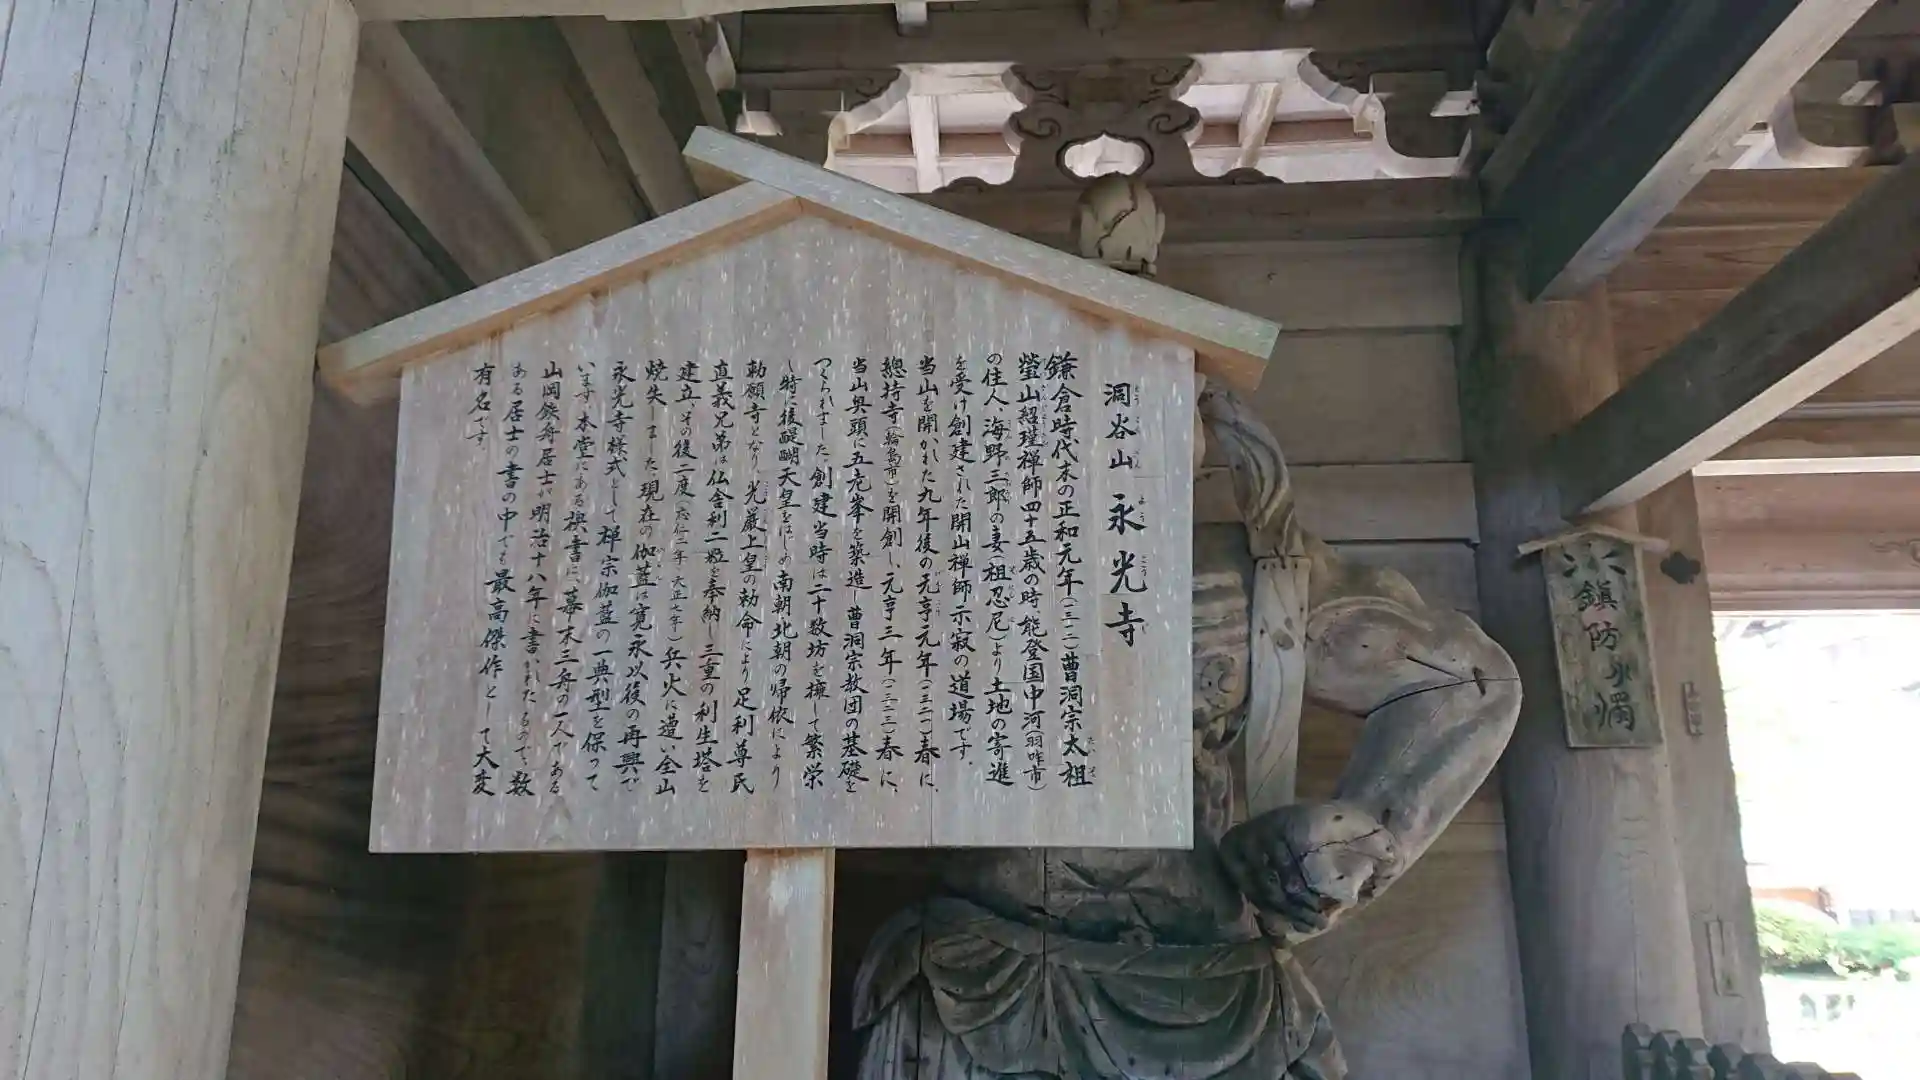 洞谷山 永光寺
鎌倉時代末の正和元年(一三一二)曹洞宗太祖
瑩山紹瑾禅師四十五歳の時、能登国中河(羽咋市)
の住人、海野三郎の妻(祖忍尼)より土地の寄進
を受け創建された開山禅師示寂の道場です。
当山を開かれた九年後の元亨元年(一三二一)春に、
總持寺(輪島市)を開創し、元亨三年(一三二三)春に、
当山奥頭に五老峯を築造し曹洞宗教団の基礎を
つくられました。創建当時は二十数坊を擁して繁栄
し特に後醍醐天皇をはじめ南朝北朝の帰依により
勅願寺となり、光厳上皇の勅命により足利尊氏
直義兄弟は仏舎利二姫を奉納し三重の利生塔を
建立、その後二度(応仁二年・天正七年)兵火に遭い全山
焼失しました。現在の伽藍は寛永以後の再興で
永光寺様式として禅宗伽藍の一典型を保って
います。本堂にある襖書は、幕末三舟の一人である
山岡鉄舟居士が明治十八年に書かれたもので、数
ある居士の書の中でも最高傑作として大変
有名です。
鎮防火燭